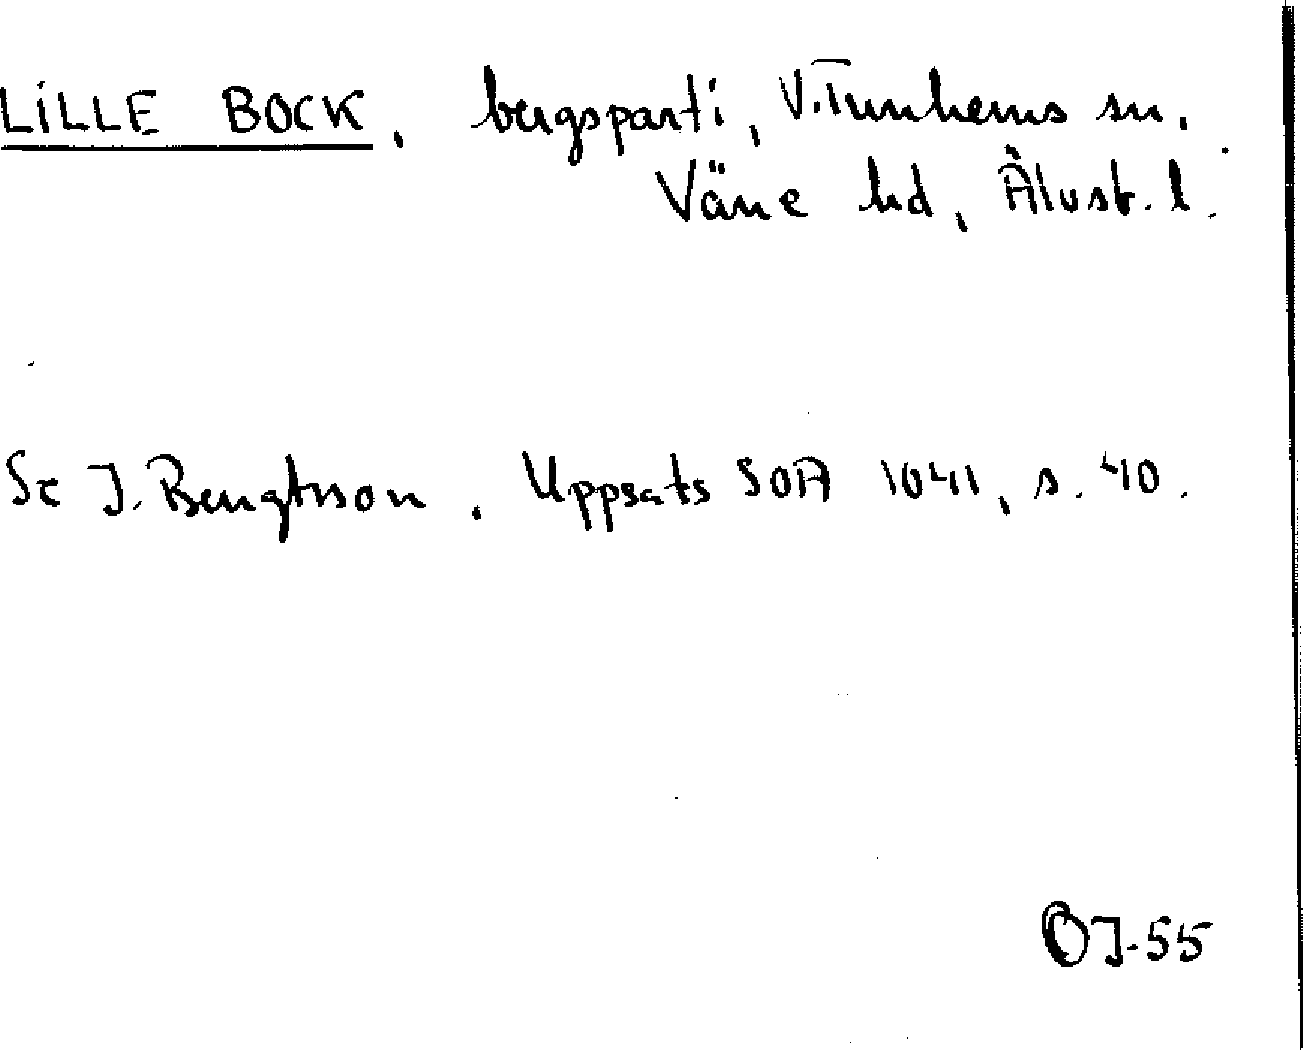 LILLE BOCK, bergsparti, V.Tunhems sn.
Väne hd, Älvsb. l.
Se J. Bengtsson. Uppsats SOA 1041, s. 40.
OJ-55